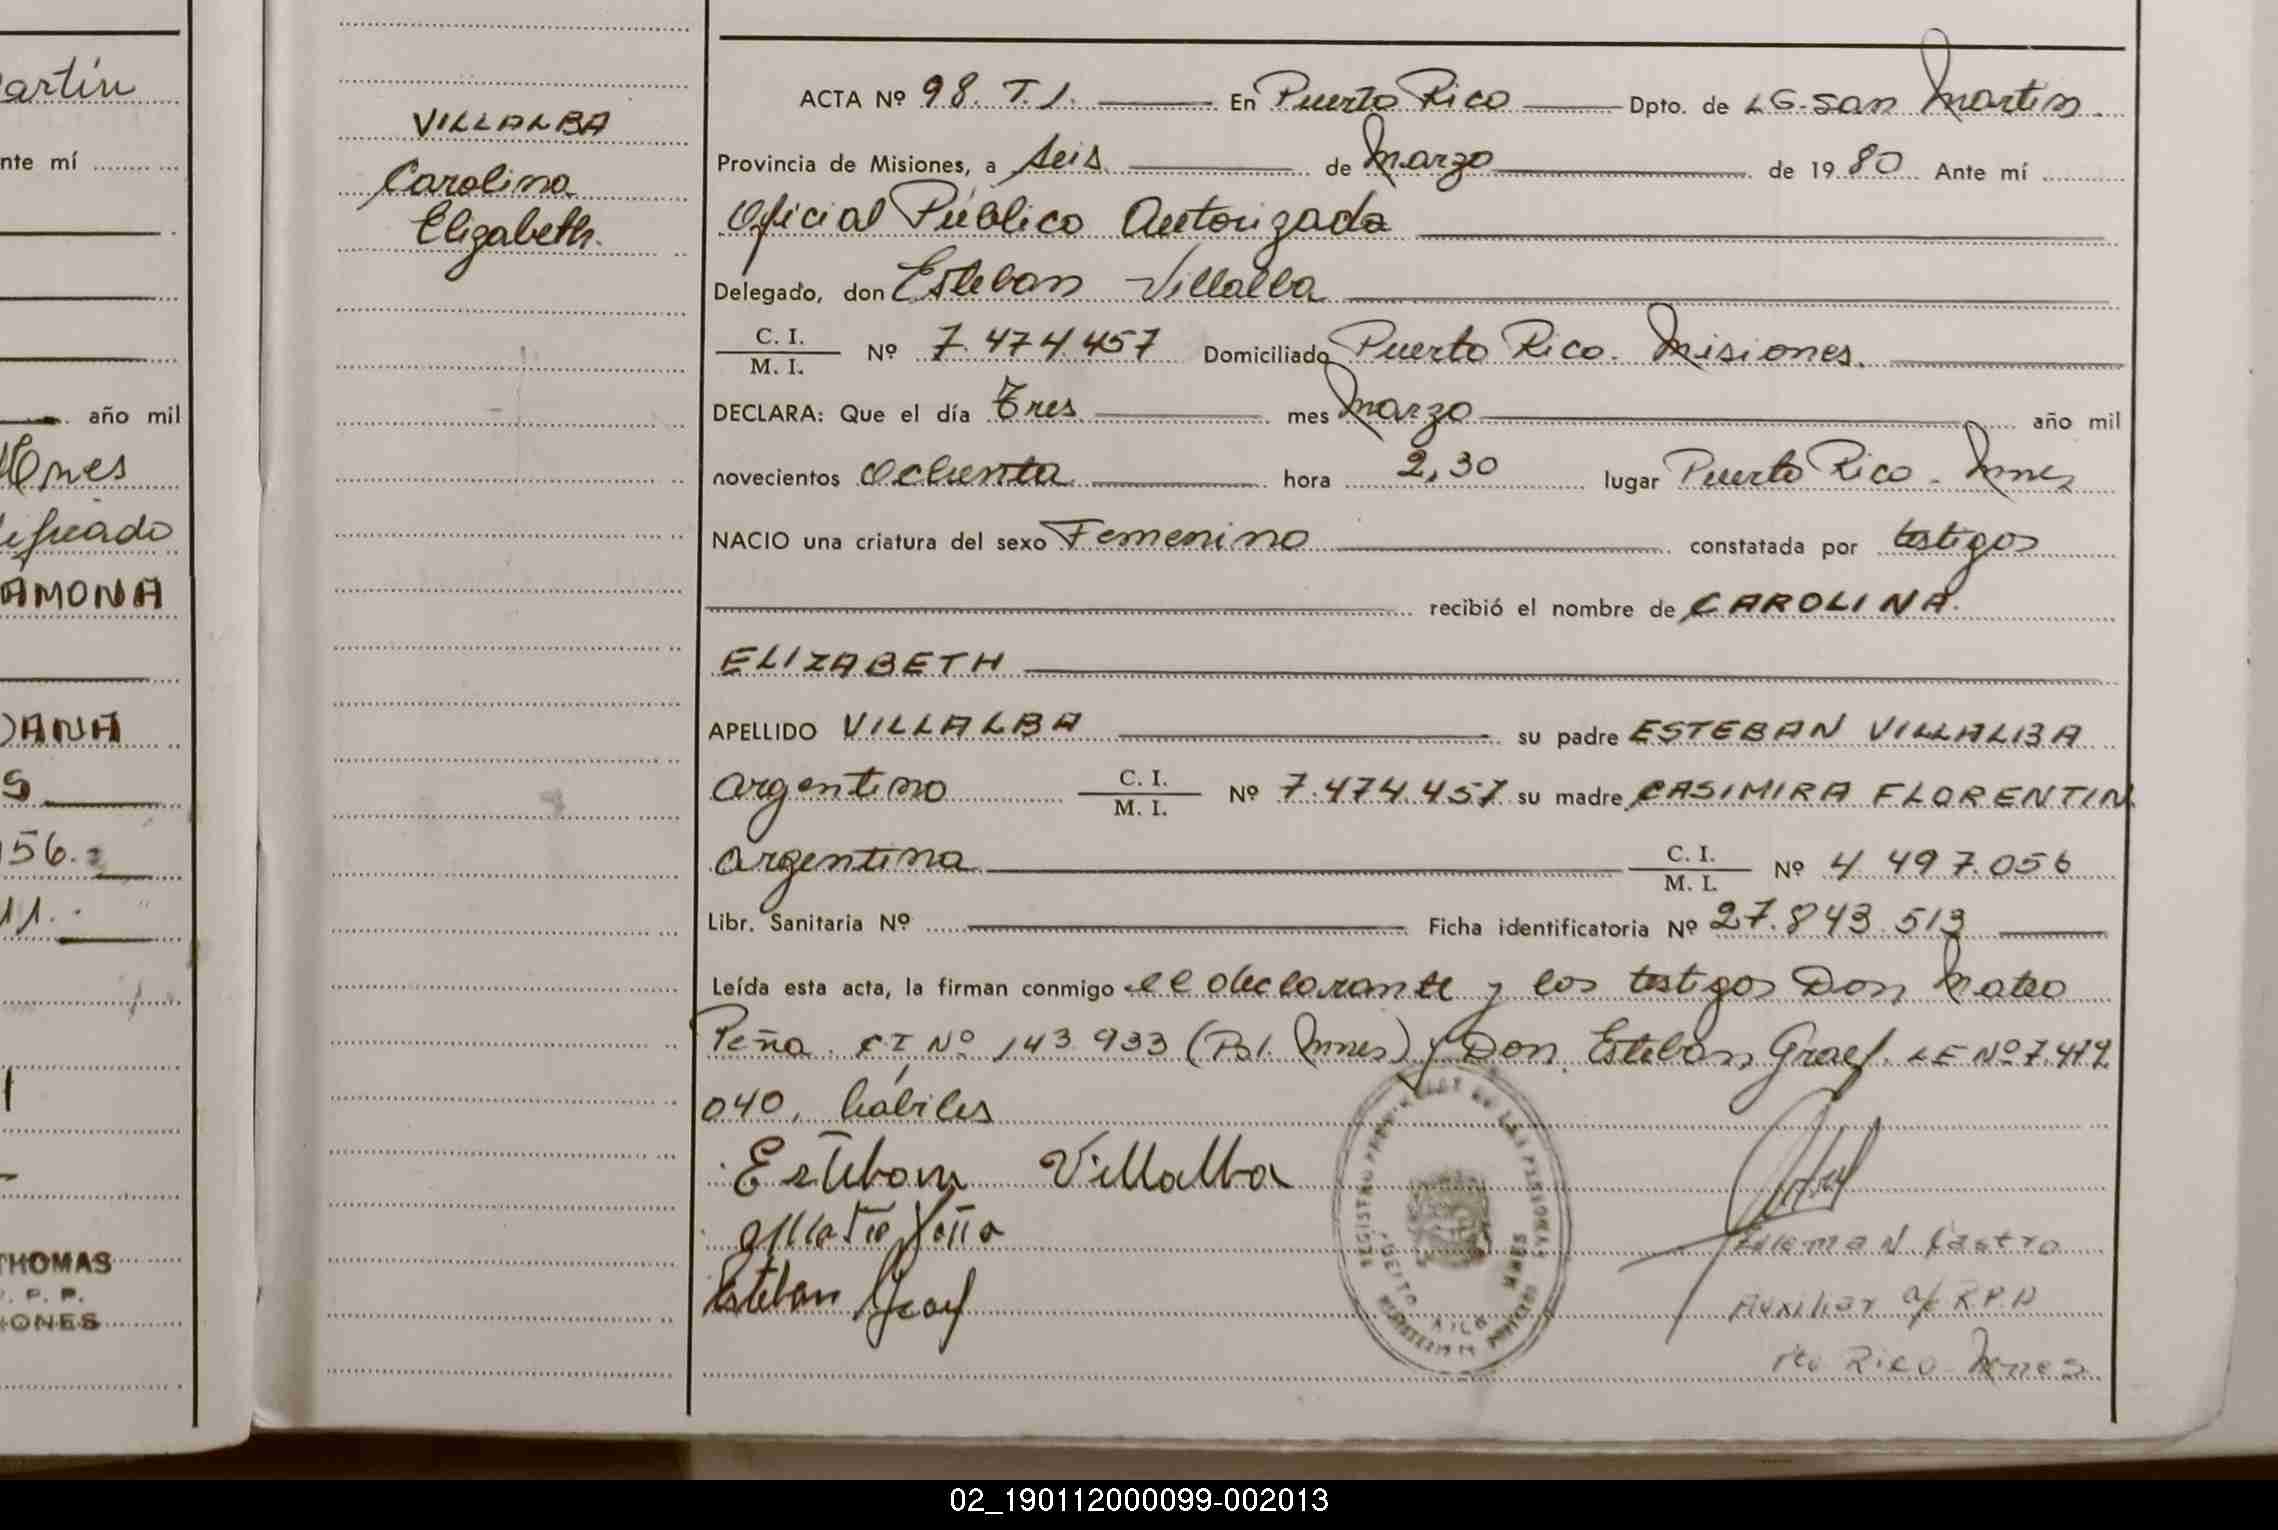 artín
nte mí
año mil
Mnes
ificado
AMONA
DANA
S
156.
11.
THOMAS
. P. P.
IONES
VILLALBA
Carolina
Elizabeth.
ACTA Nº 98. T.I. En Puerto Rico Dpto. de LG. San Martin
Provincia de Misiones, a seis de Marzo de 1980 Ante mí
Oficial Público Autorizada
Delegado, don Esteban Villalba
C. I.
M. I. Nº 7.474.457 Domiciliado Puerto Rico. Misiones.
DECLARA: Que el día Tres mes Marzo año mil
novecientos ochenta hora 2,30 lugar Puerto Rico - Mnes
NACIO una criatura del sexo Femenino constatada por testigos
recibió el nombre de CAROLINA.
ELIZABETH
APELLIDO VILLALBA su padre ESTEBAN VILLALBA
argentino C. I.
M. I. Nº 7.474.457 su madre CASIMIRA FLORENTIN
argentina C. I.
M. I. Nº 4 497.056
Libr. Sanitaria Nº Ficha identificatoria Nº 27.843.513
Leída esta acta, la firman conmigo el declarante y los testigos Don Mateo
Peña. CI Nº 143 933 (Pol. Mnes) y Don Esteban Graef. LE Nº 7.472
040, hábiles
Esteban Villalba
Mateo Peña
Esteban Graef
N. Castro
Auxiliar a/c R.P.D
Pto Rico - Mnes
02_190112000099-002013